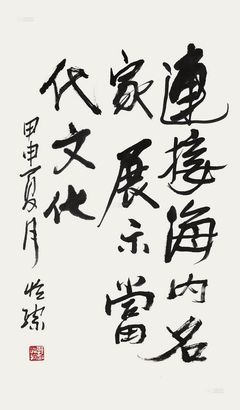 連接海内名
家展示當
代文化
甲申夏月